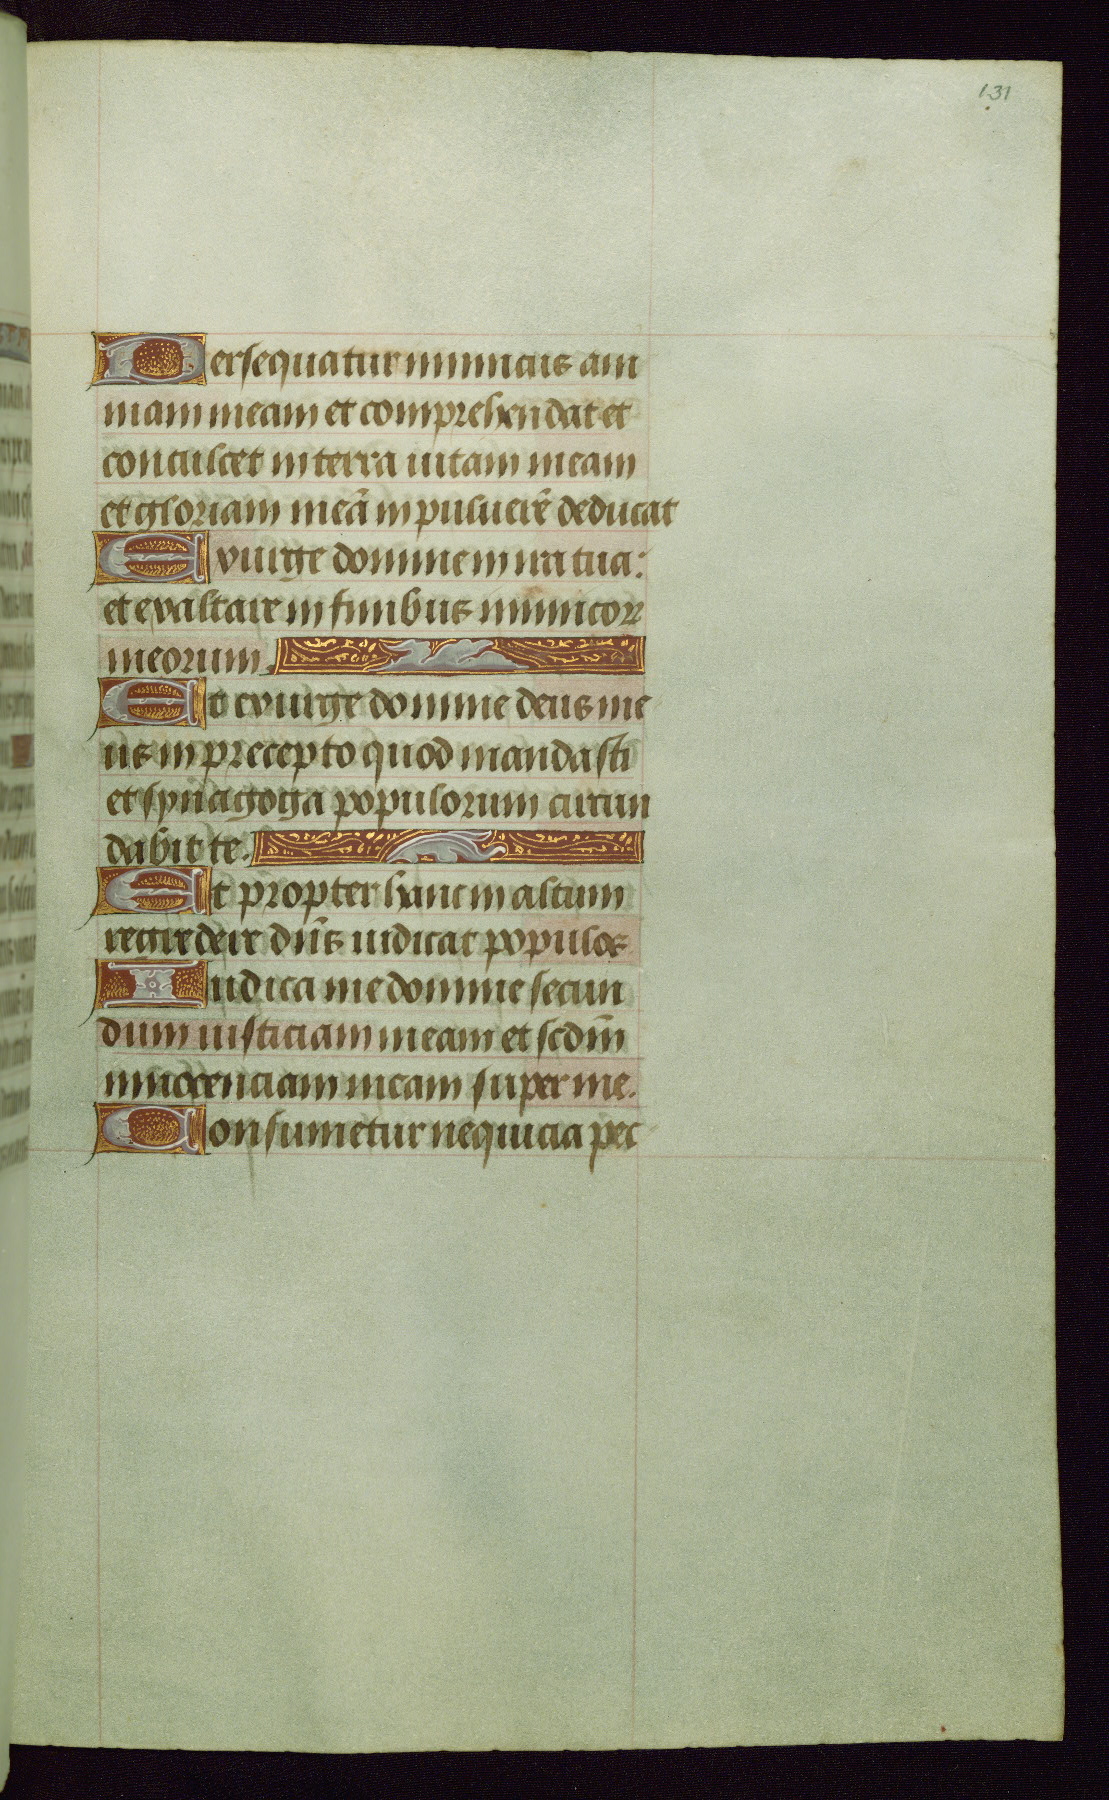 131
Persequatur inimicus ani
mam meam et comprehendat et
conculcet in terra uitam meam
et gloriam meā in puluerē deducat
Exurge domine in ira tua:
et exaltare in finibus inimicorꝝ
meorum.
Et exurge domine deus me
us in precepto quod mandasti
et synagoga populorum circun
dabit te.
Et propter hanc in altum
regredere dn̄s iudicat populos
Iudica me domine secun
dum iusticiam meam et scdm̄
innocenciam meam super me.
Consumetur nequicia pec